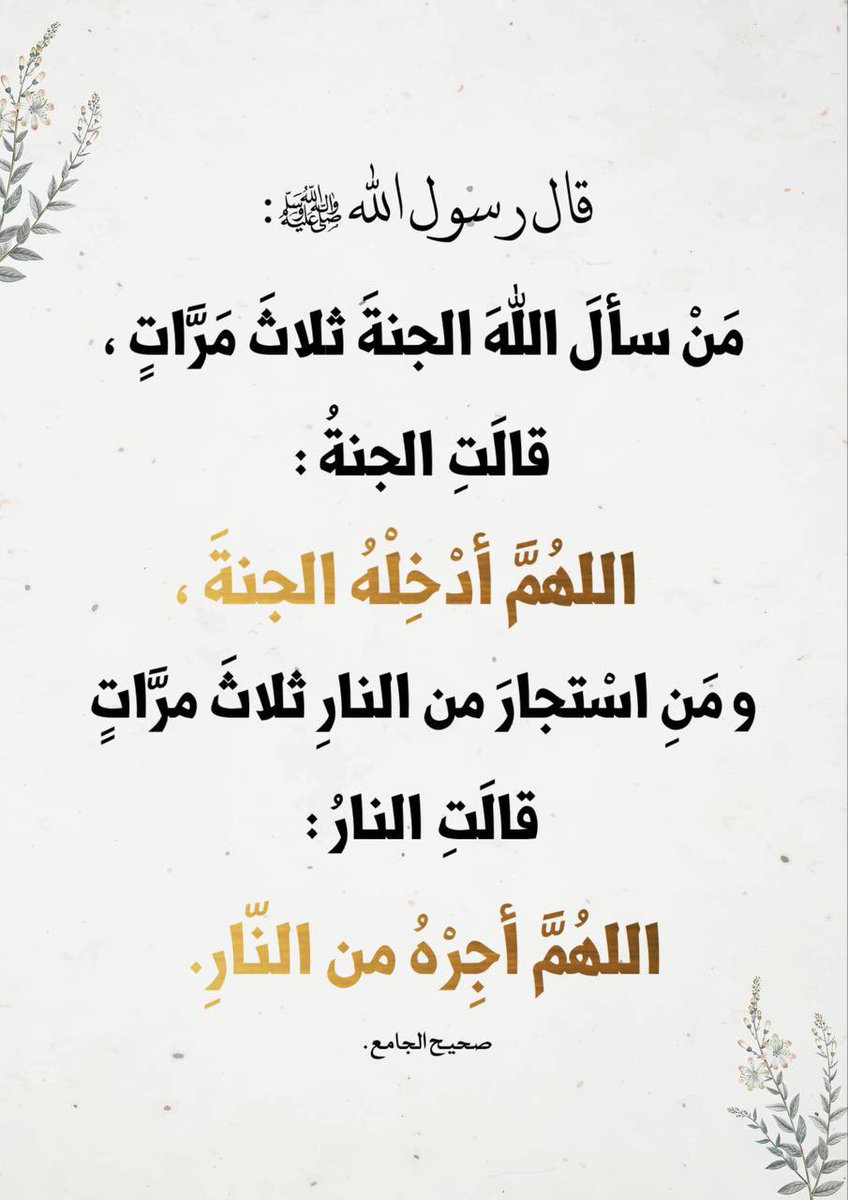 قال رسول الله ﷺ:
مَنْ سألَ اللهَ الجنةَ ثلاثَ مَرَّاتٍ ،
قالَتِ الجنةُ :
اللهُمَّ أدْخِلْهُ الجنةَ ،
و مَنِ اسْتجارَ من النارِ ثلاثَ مرَّاتٍ
قالَتِ النارُ :
اللهُمَّ أجِرْهُ من النّارِ.
صحيح الجامع.